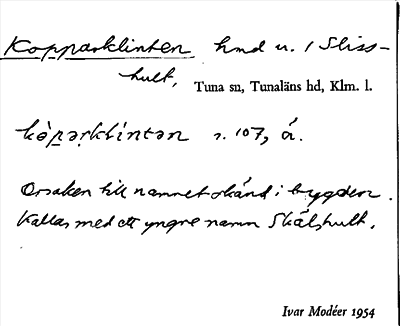 Kopparklinten hmd u. / Sliss-
hult,
Tuna sn, Tunaläns hd, Klm. l.
kὸpạrklíntən r. 107, á.
Orsaken till namnet okänd i bygden.
Kallas med ett yngre namn Skälshult.
Ivar Modéer 1954